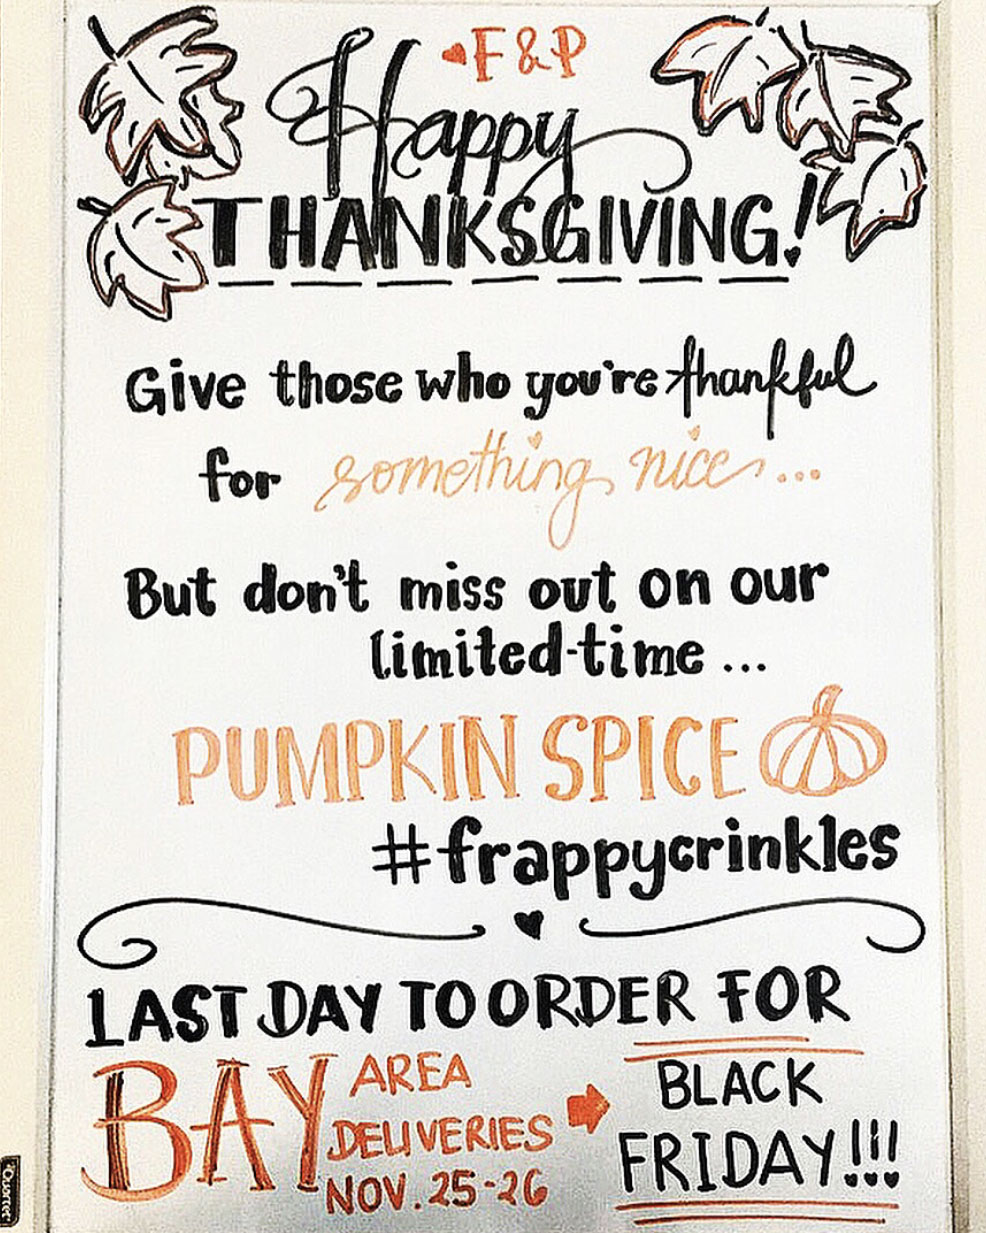 F & P
Happy
THANKSGIVING!
Give those who you're thankful
for something nice...
But don't miss out on our
limited-time...
PUMPKIN SPICE
#frappycrinkles
LAST DAY TO ORDER FOR
BAY AREA
DELIVERIES
NOV. 25-26
BLACK
FRIDAY!!!
Quartet